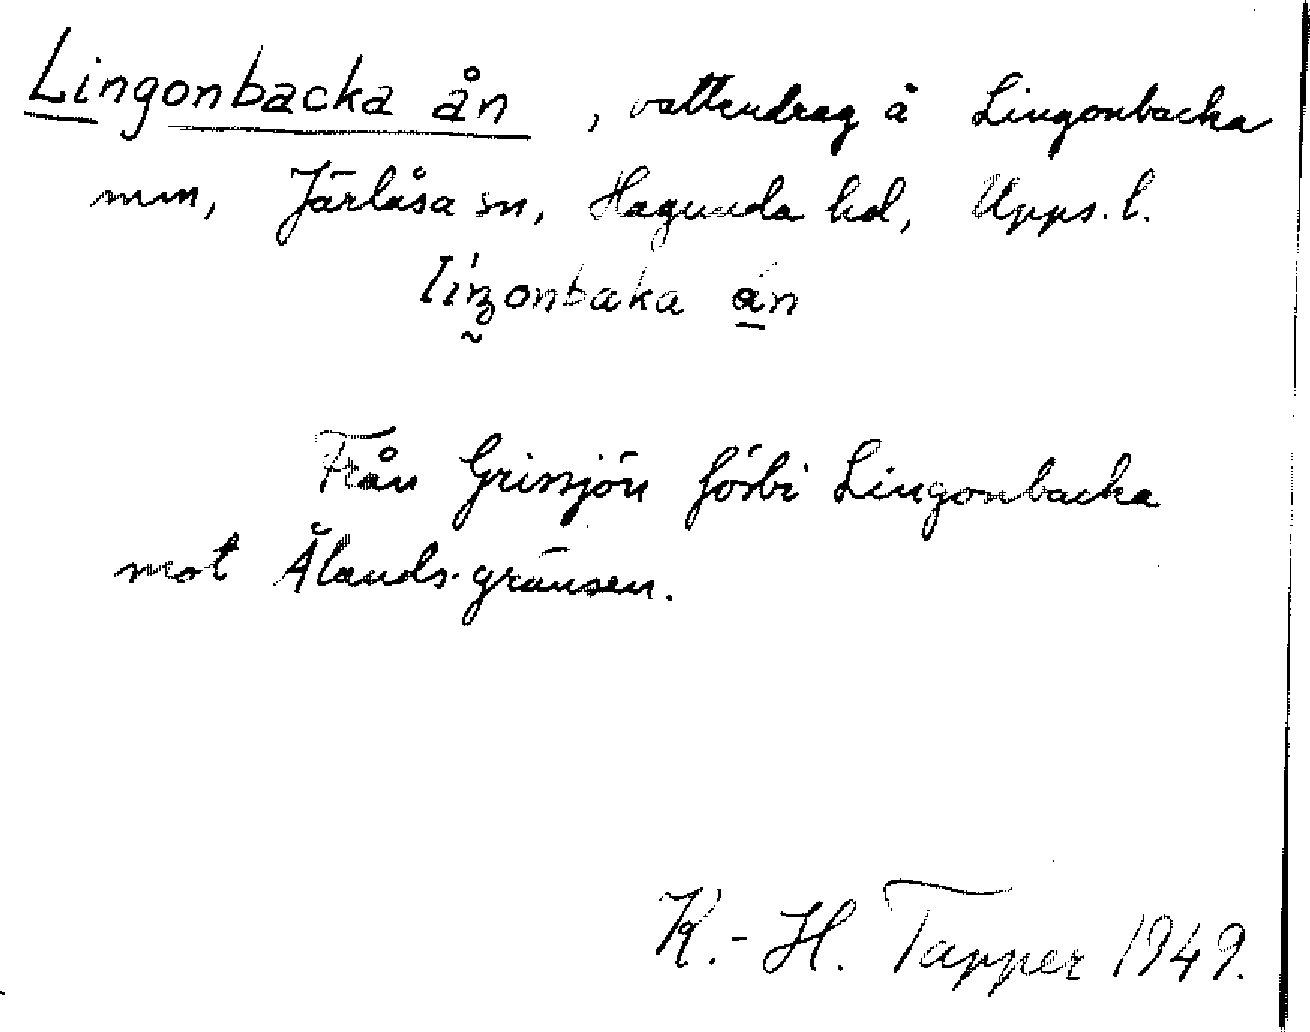 Lingonbacka ån, vattendrag å Lingonbacka
mm, Järlåsa sn, Hagunda hd, Upps. l.
ån
Från Grissjön förbi Lingonbacka
mot Ålands-gränsen.
K.-H. Tapper 1949.